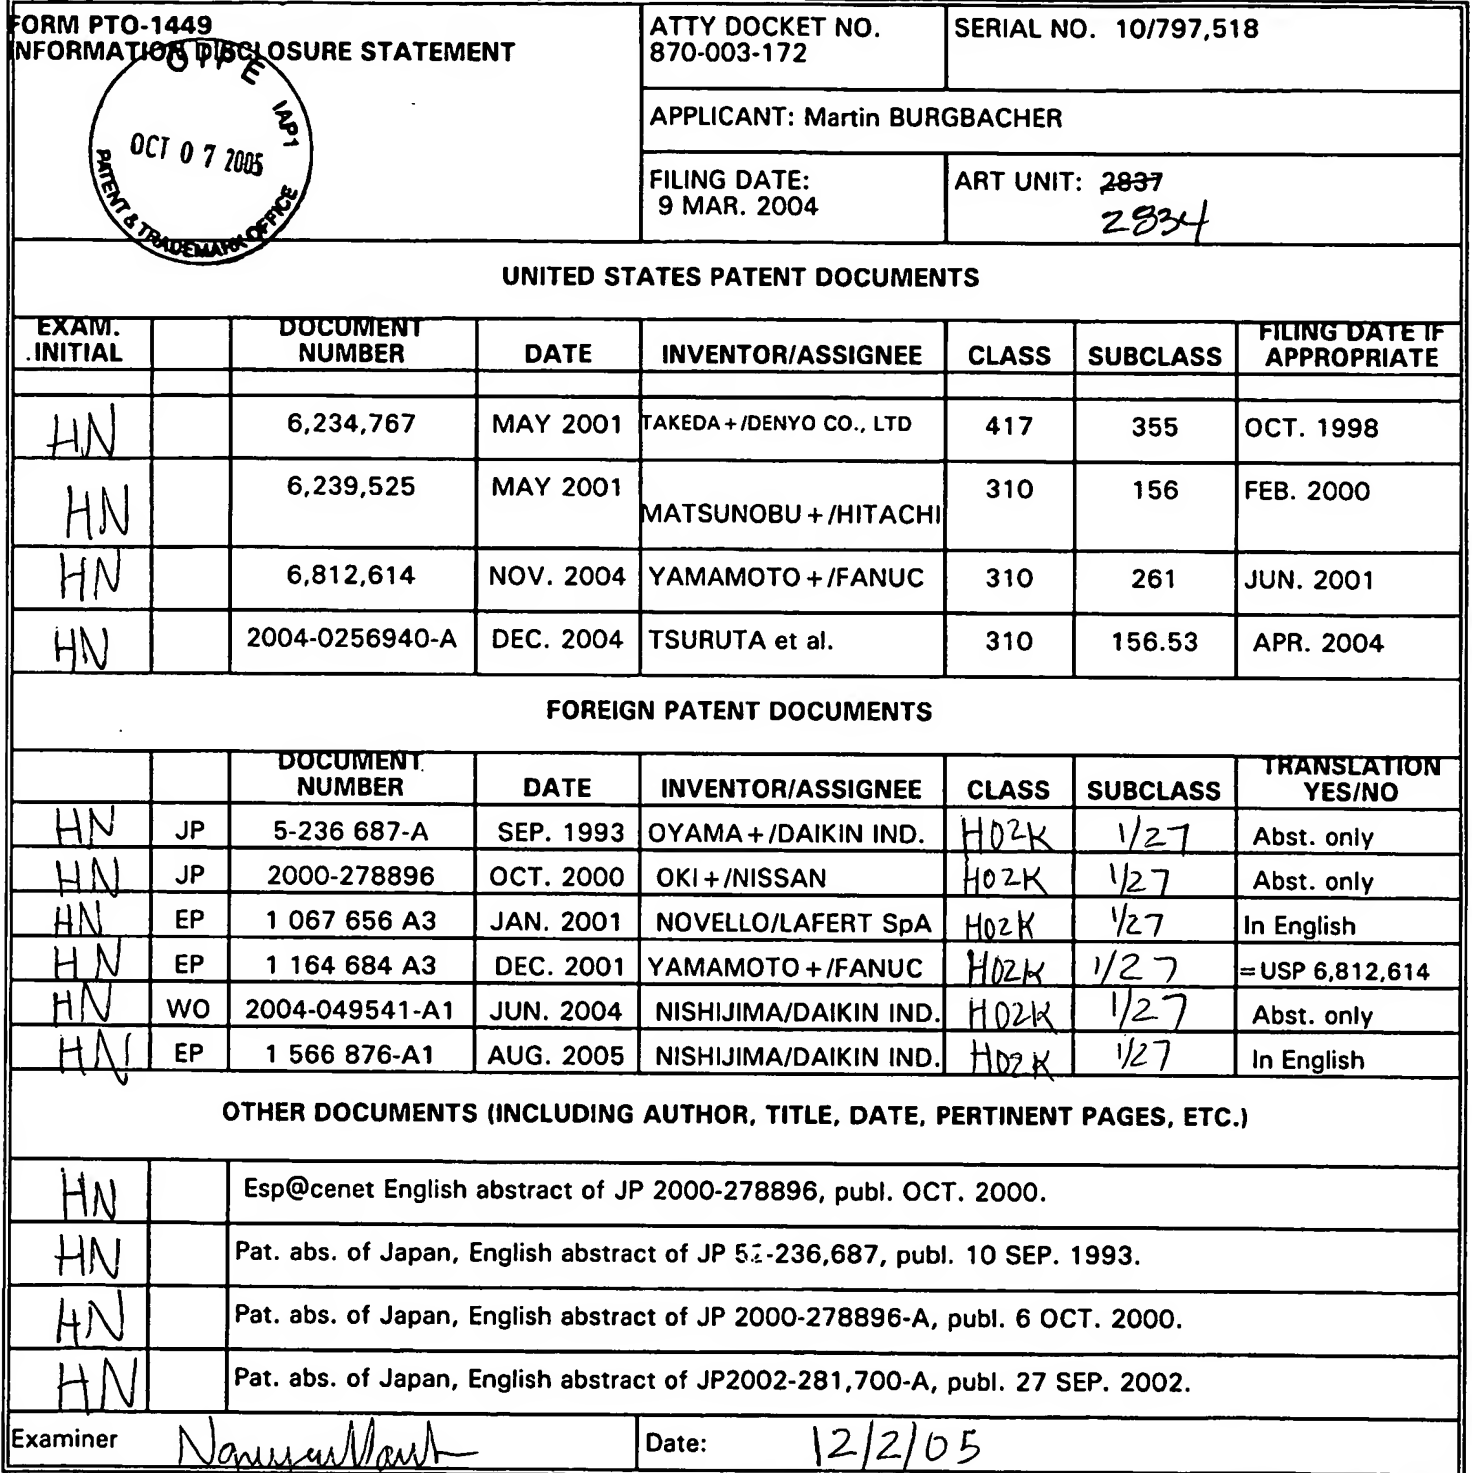 FORM PTO-1449
INFORMATION DISCLOSURE STATEMENT
OIPE IAP1
OCT 07 2005
PATENT & TRADEMARK OFFICE
ATTY DOCKET NO.
870-003-172
SERIAL NO. 10/797,518
APPLICANT: Martin BURGBACHER
FILING DATE:
9 MAR. 2004
ART UNIT: 2837
2834
UNITED STATES PATENT DOCUMENTS
EXAM. INITIAL DOCUMENT NUMBER DATE INVENTOR/ASSIGNEE CLASS SUBCLASS FILING DATE IF APPROPRIATE
HN 6,234,767 MAY 2001 TAKEDA+/DENYO CO., LTD 417 355 OCT. 1998
HN 6,239,525 MAY 2001 MATSUNOBU+/HITACHI 310 156 FEB. 2000
HN 6,812,614 NOV. 2004 YAMAMOTO+/FANUC 310 261 JUN. 2001
HN 2004-0256940-A DEC. 2004 TSURUTA et al. 310 156.53 APR. 2004
FOREIGN PATENT DOCUMENTS
DOCUMENT NUMBER DATE INVENTOR/ASSIGNEE CLASS SUBCLASS TRANSLATION YES/NO
HN JP 5-236 687-A SEP. 1993 OYAMA+/DAIKIN IND. H02K 1/27 Abst. only
HN JP 2000-278896 OCT. 2000 OKI+/NISSAN H02K 1/27 Abst. only
HN EP 1 067 656 A3 JAN. 2001 NOVELLO/LAFERT SpA H02K 1/27 In English
HN EP 1 164 684 A3 DEC. 2001 YAMAMOTO+/FANUC H02K 1/27 =USP 6,812,614
HN WO 2004-049541-A1 JUN. 2004 NISHIJIMA/DAIKIN IND. H02K 1/27 Abst. only
HN EP 1 566 876-A1 AUG. 2005 NISHIJIMA/DAIKIN IND. H02K 1/27 In English
OTHER DOCUMENTS (INCLUDING AUTHOR, TITLE, DATE, PERTINENT PAGES, ETC.)
HN Esp@cenet English abstract of JP 2000-278896, publ. OCT. 2000.
HN Pat. abs. of Japan, English abstract of JP publ. 10 SEP. 1993.
HN Pat. abs. of Japan, English abstract of JP 2000-278896-A, publ. 6 OCT. 2000.
HN Pat. abs. of Japan, English abstract of JP2002-281,700-A, publ. 27 SEP. 2002.
Examiner Date: 12/2/05